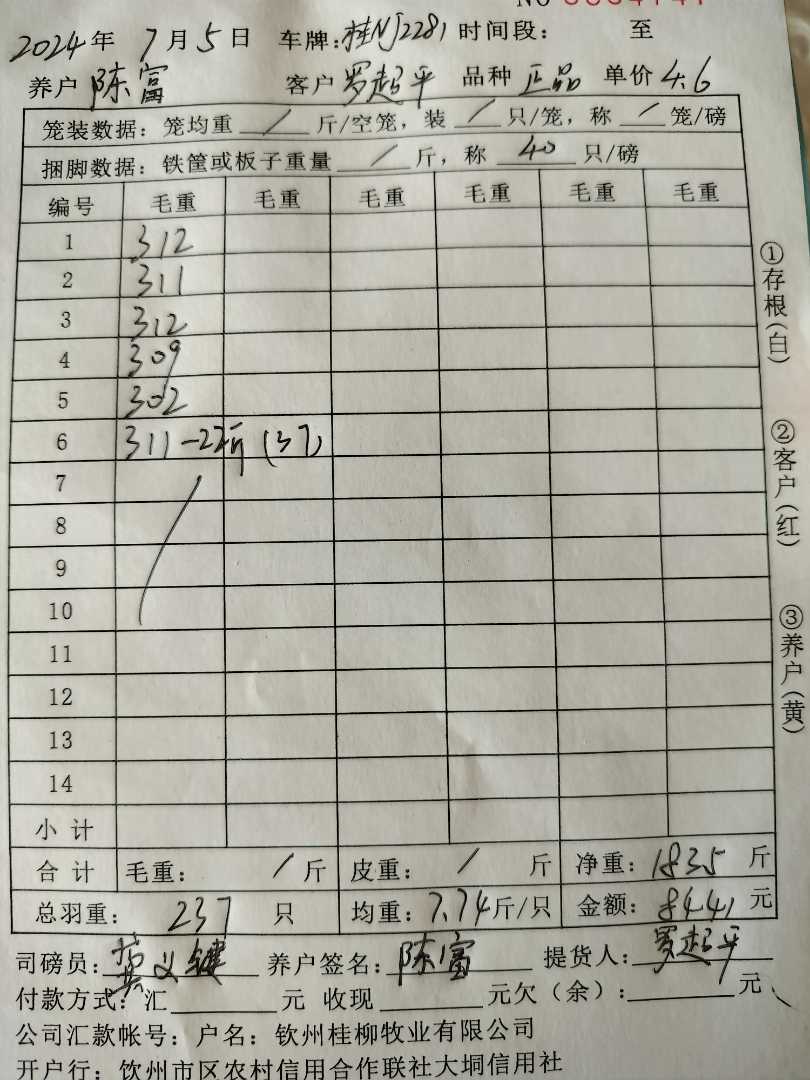 2024年 7月5日 车牌:桂NJ2281 时间段: 至
养户 陈富 客户 罗超平 品种 正品 单价 4.6
笼装数据: 笼均重 / 斤/空笼, 装 / 只/笼, 称 / 笼/磅
捆脚数据: 铁筐或板子重量 / 斤, 称 40 只/磅
编号 毛重 毛重 毛重 毛重 毛重 毛重
1 312
2 311
3 312
4 309
5 302
6 311-22斤 (37)
7
8
9
10
11
12
13
14
小计
合计 毛重: / 斤 皮重: / 斤 净重: 1835 斤
总羽重: 237 只 均重: 7.74 斤/只 金额: 8441 元
司磅员: 义键 养户签名: 陈富 提货人: 罗超平
付款方式: 汇 元 收现 元欠(余): 元
公司汇款帐号: 户名: 钦州桂柳牧业有限公司
开户行: 钦州市区农村信用合作联社大垌信用社
①存根(白)
②客户(红)
③养户(黄)